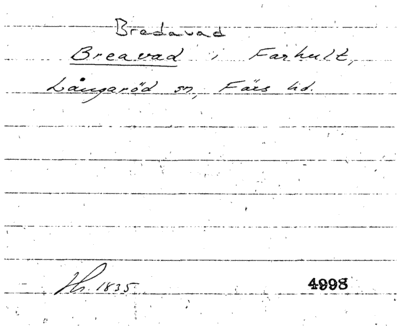 Bredavad
Breavad i Farhult,
Långaröd sn, Färs hd.
Hs. 1835
4998